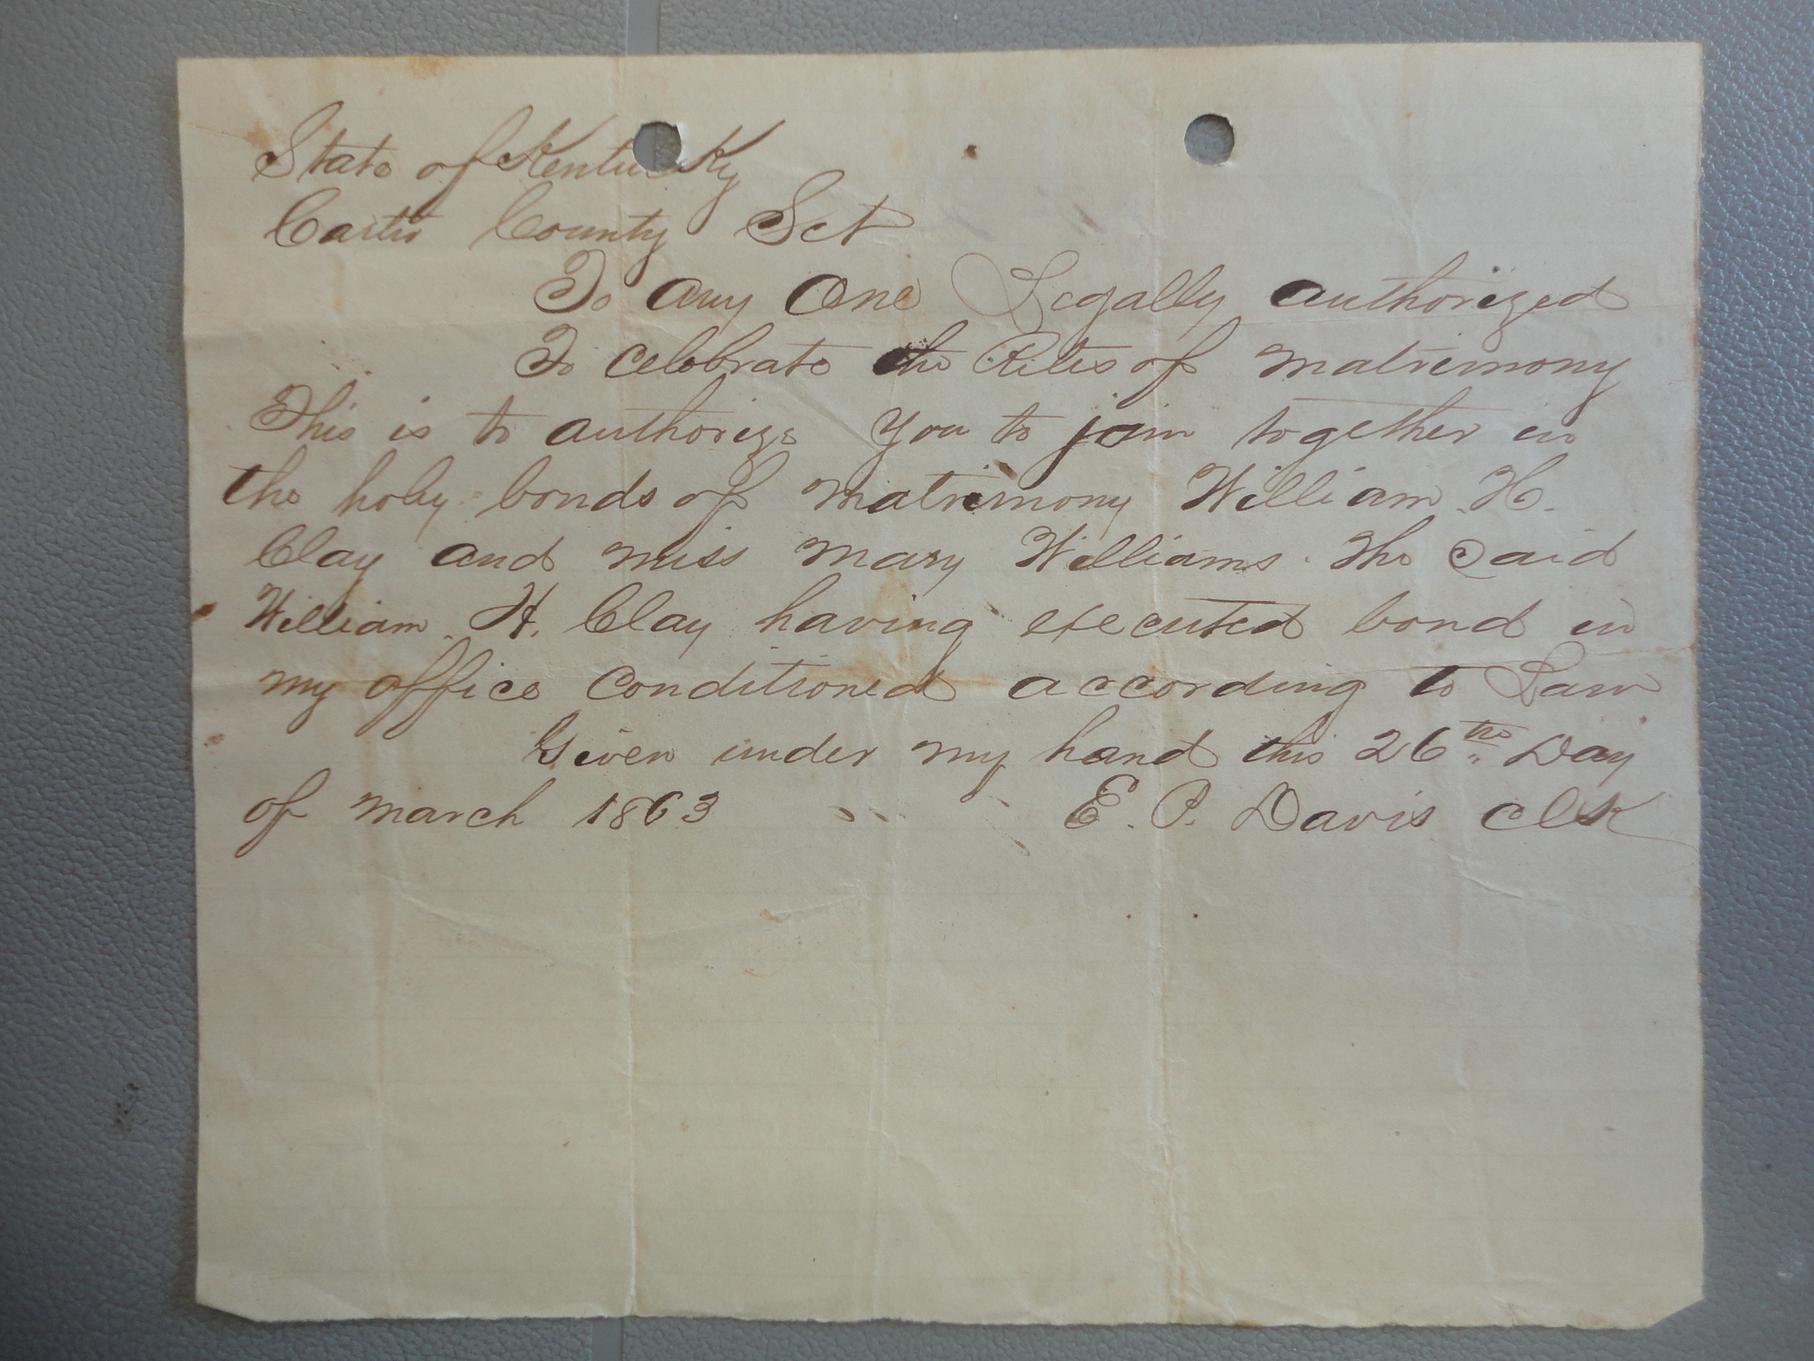 State of Kentucky
Carter County Sct
To any One Legally authorized
To celebrate the Rites of matrimony
This is to authorize you to join together in
the holy bonds of matrimony William H.
Clay and miss Mary Williams. The Said
William H. Clay having executed bond in
my office conditioned according to Law
Given under my hand this 26th Day
of march 1863 E. P. Davis clk